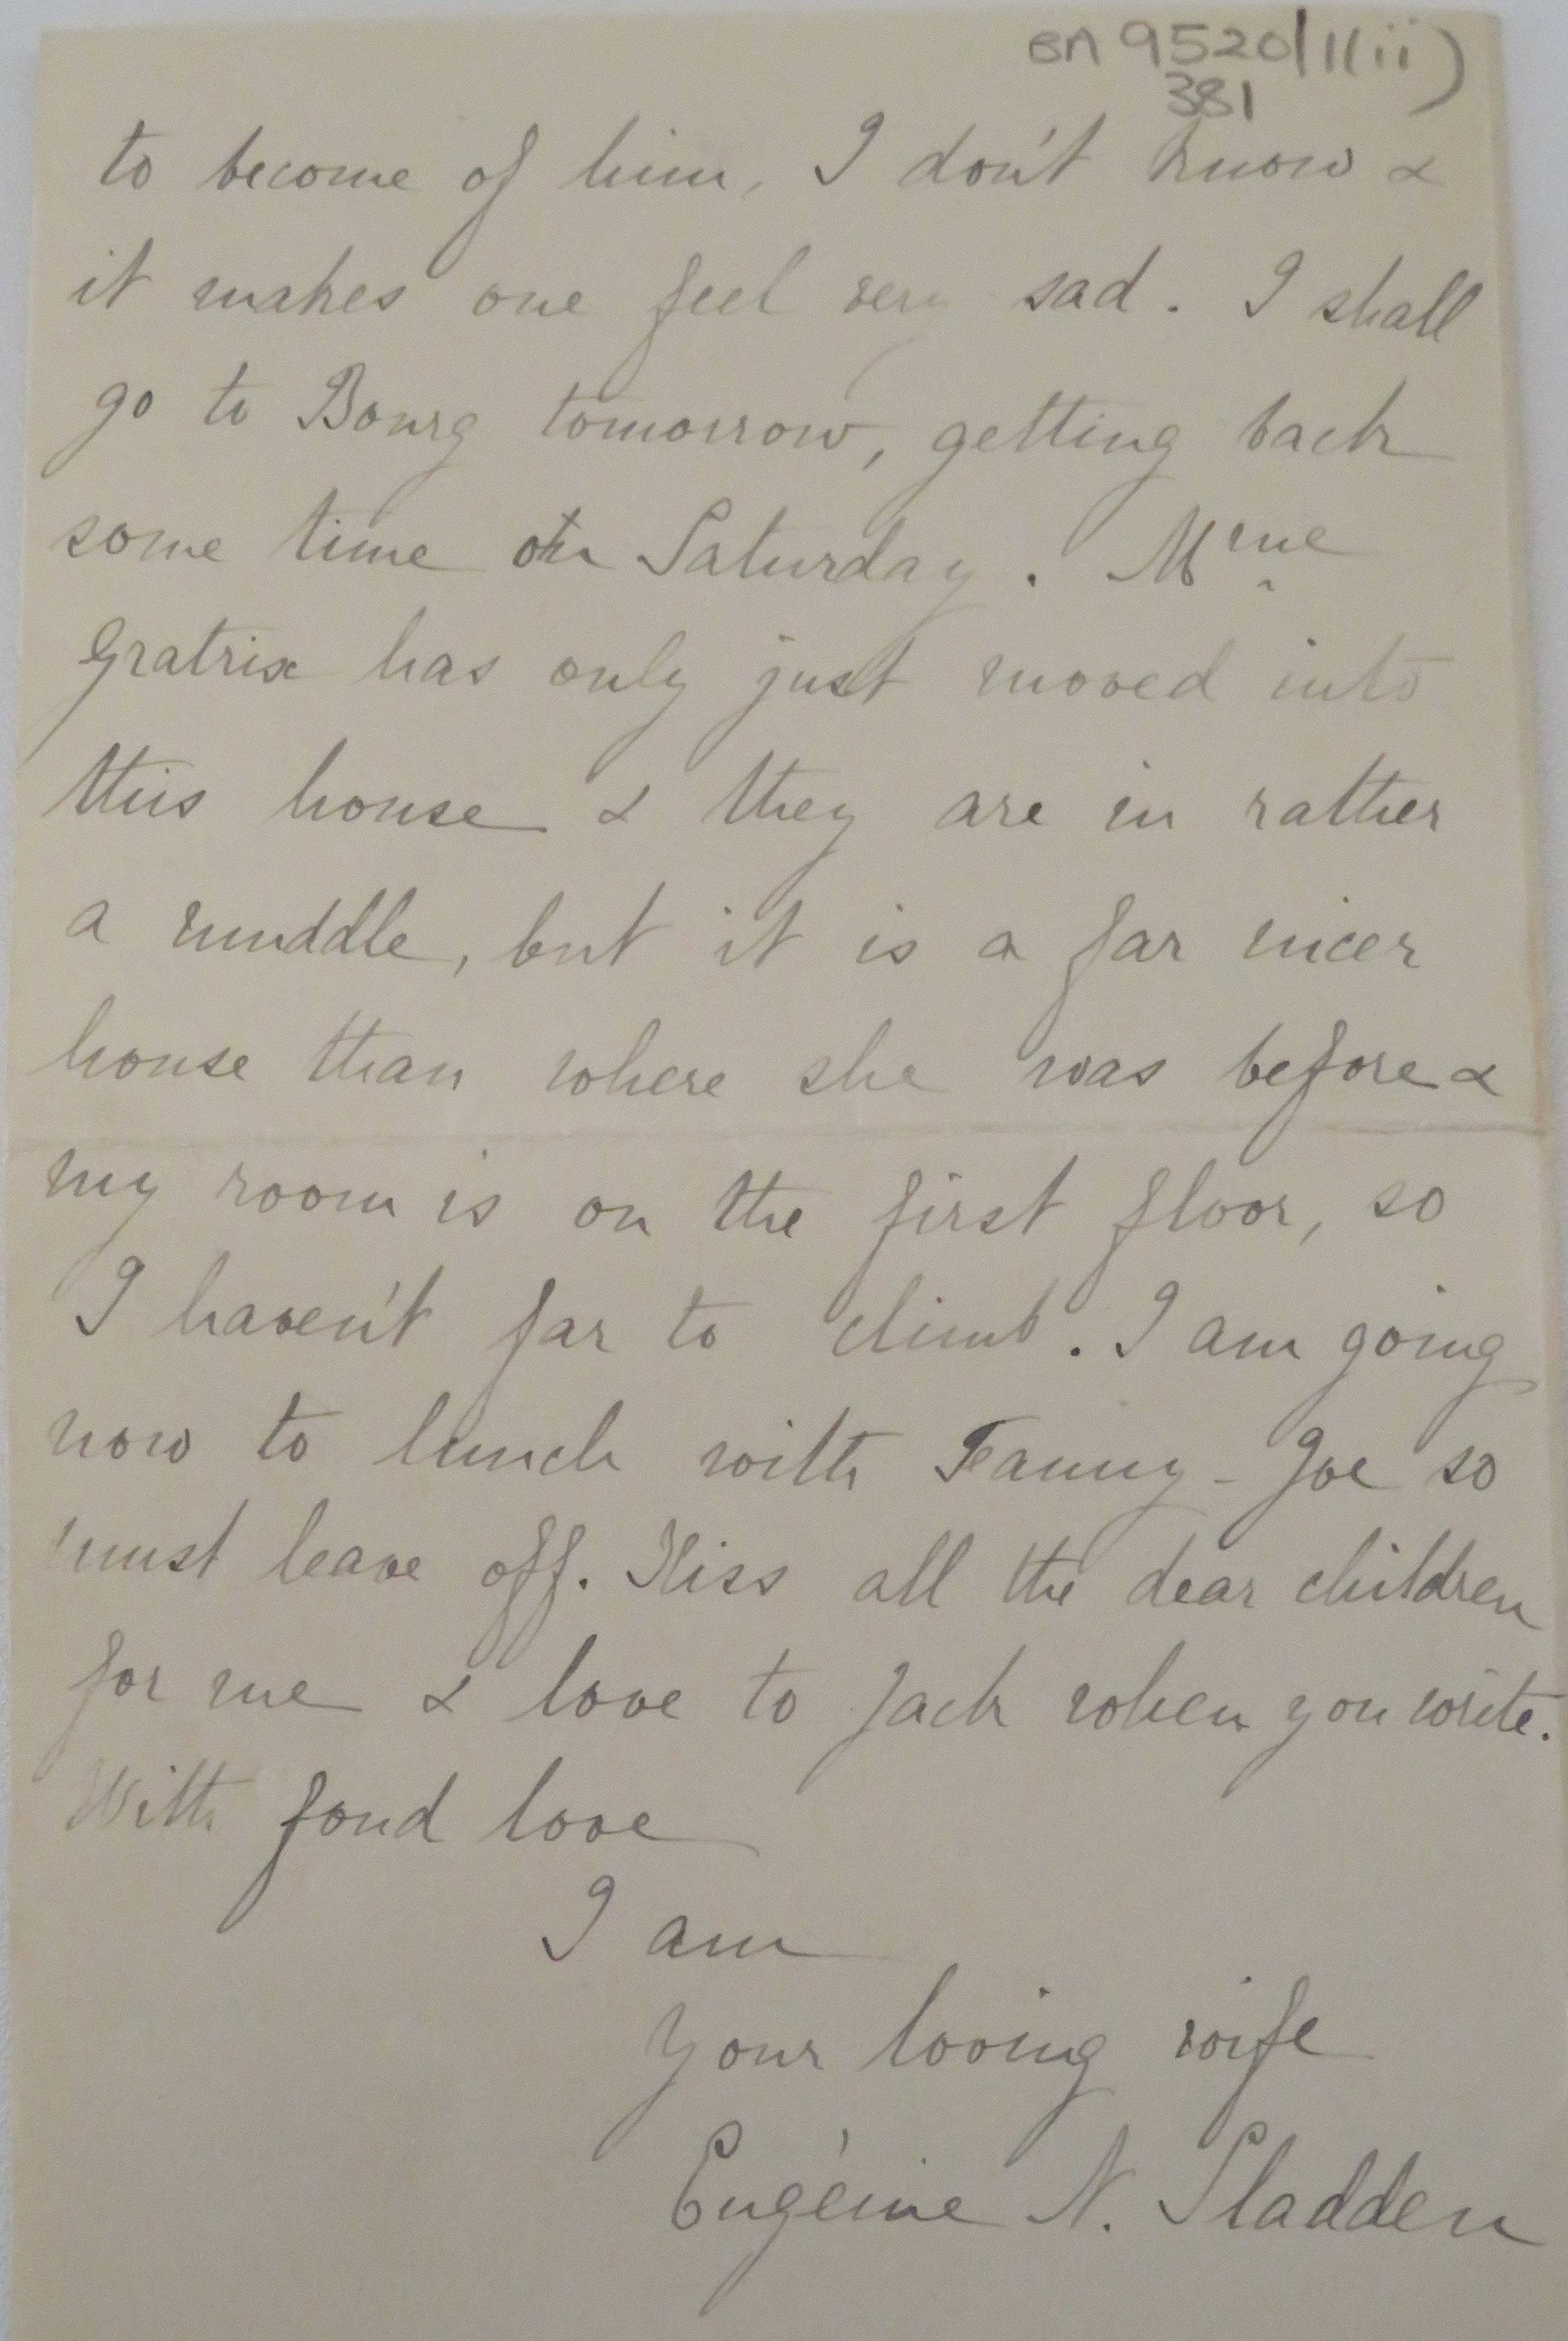 BA 9520/1(ii)
381
to become of him, I don't know &
it makes one feel very sad. I shall
go to Bourg tomorrow, getting back
some time on Saturday. Mme
Gratrix has only just moved into
this house & they are in rather
a muddle, but it is a far nicer
house than where she was before &
my room is on the first floor, so
I haven't far to climb. I am going
now to lunch with Fanny-Joe so
must leave off. Kiss all the dear children
for me & love to Jack when you write.
With fond love
I am
your loving wife
Eugénie N. Sladden